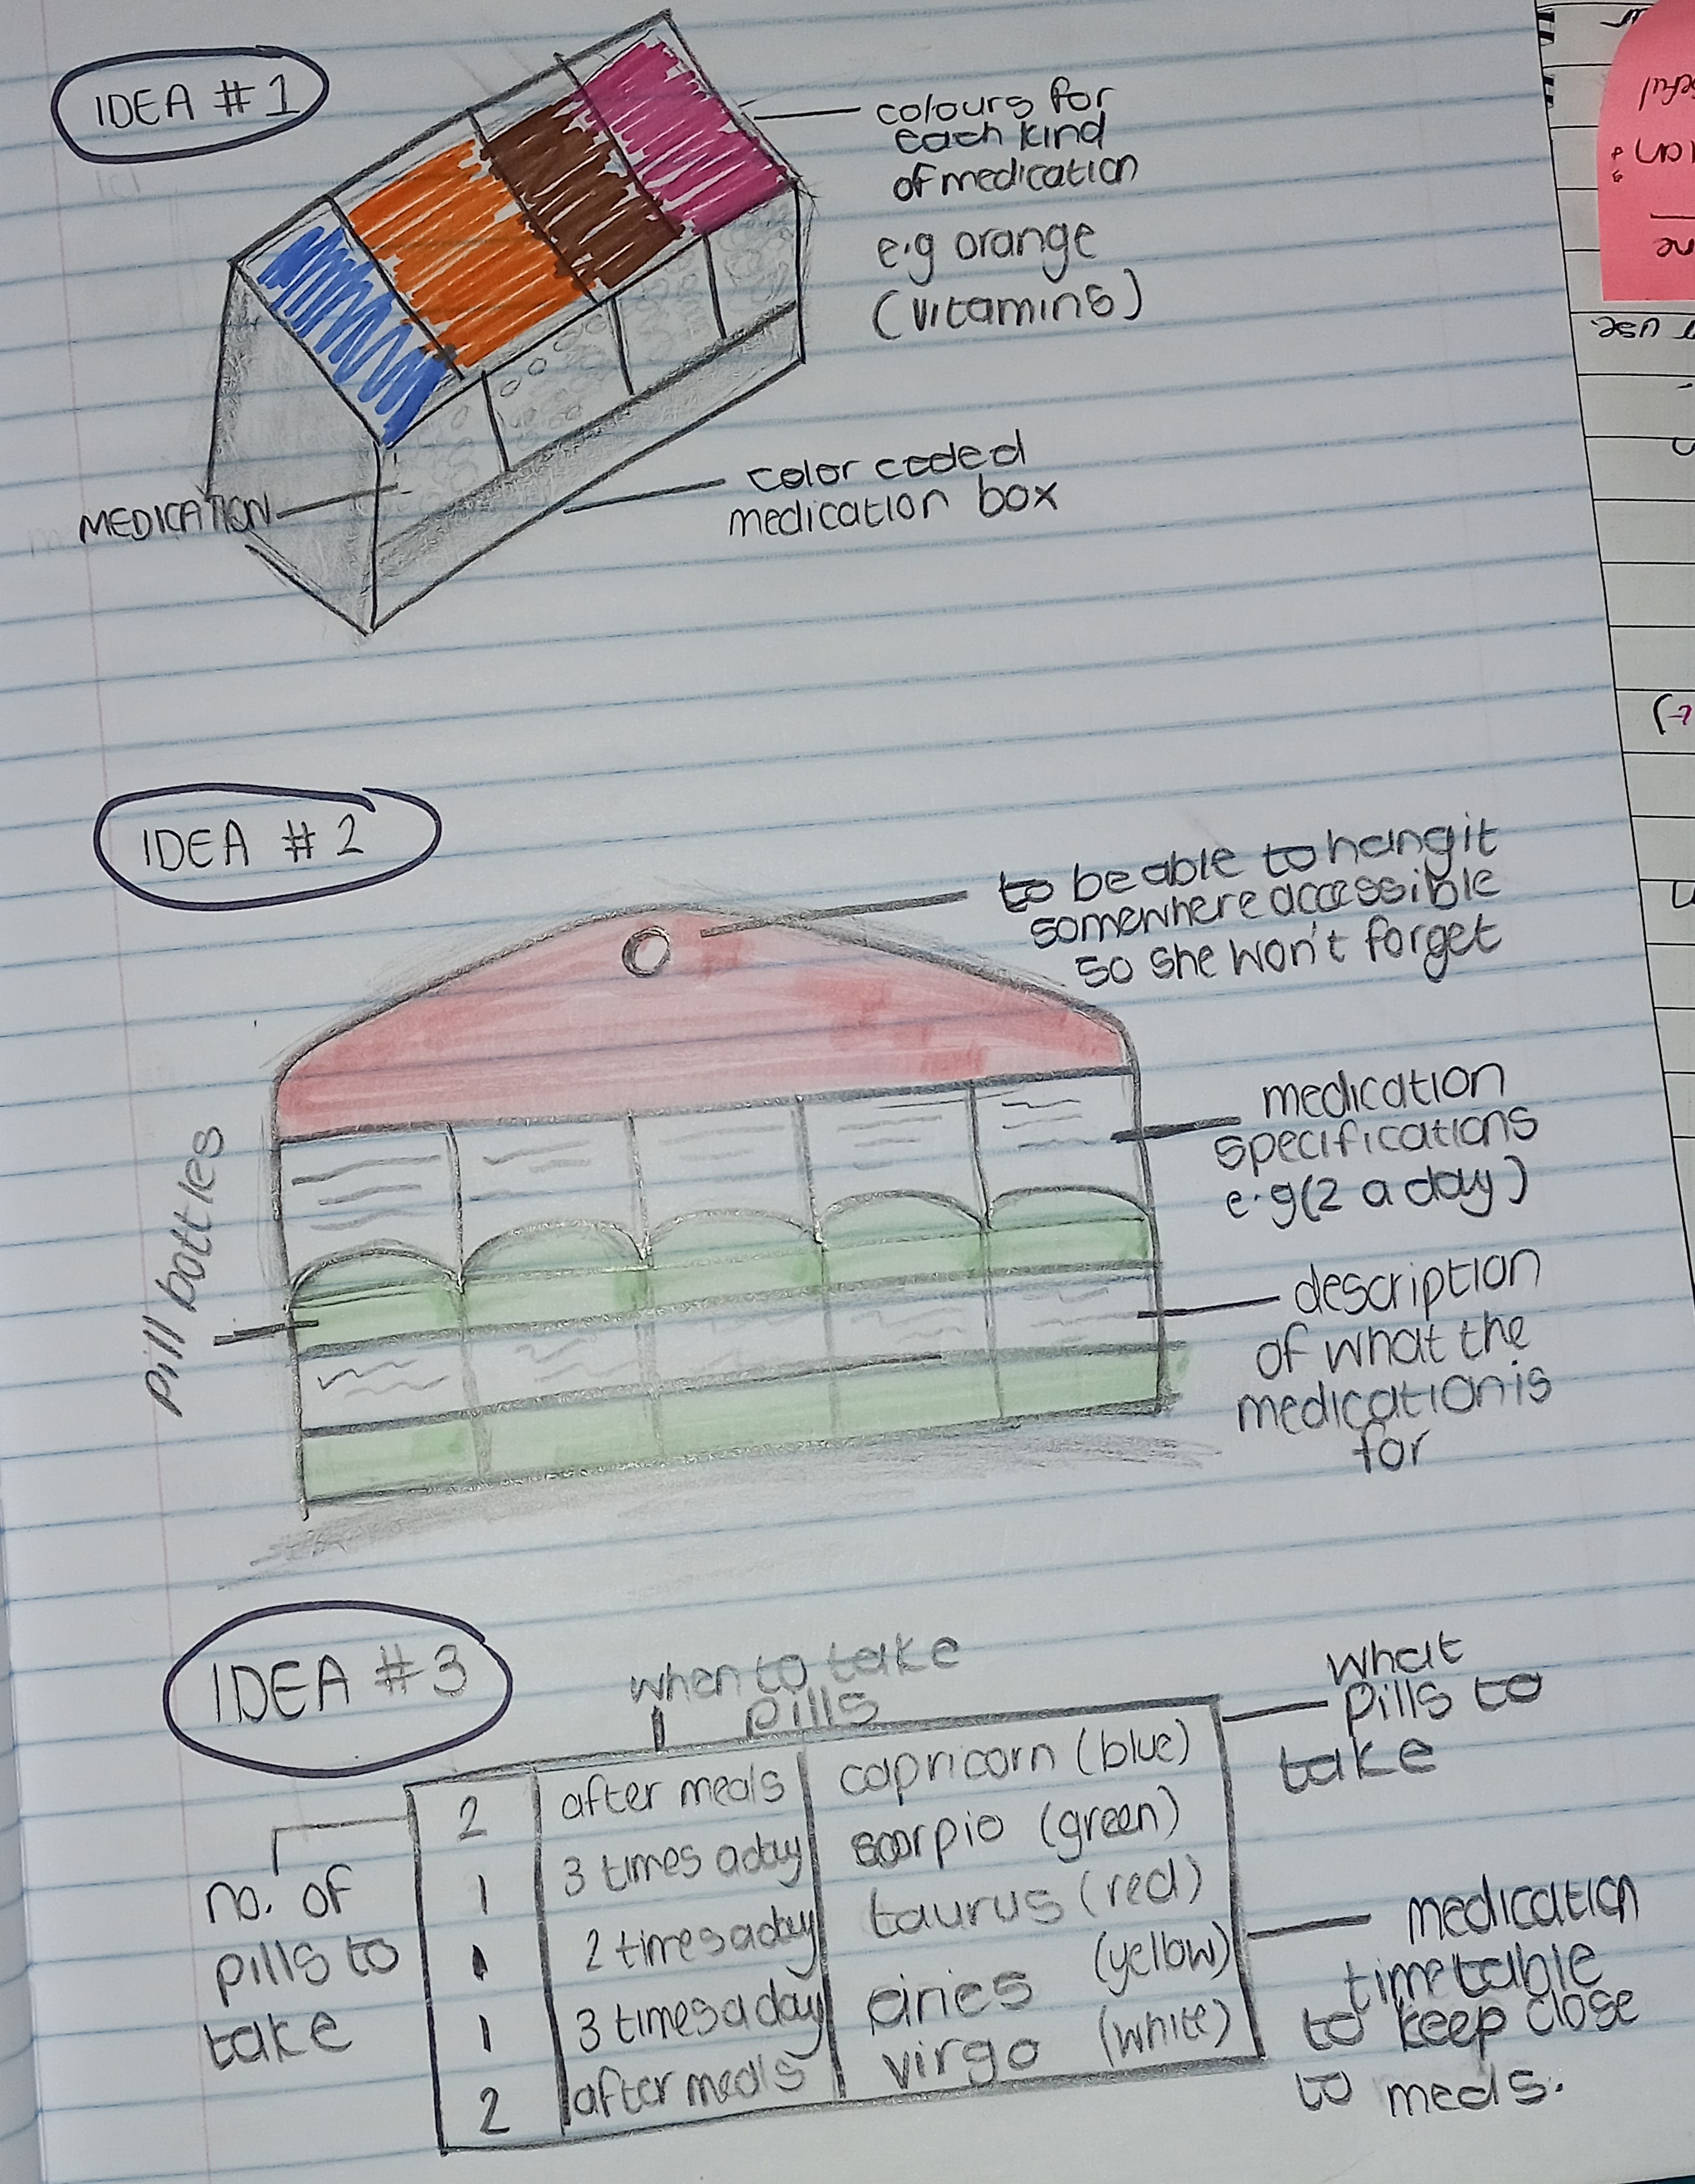 IDEA #1
colours for
each kind
of medication
e.g orange
(vitamins)
MEDICATION
color coded
medication box
IDEA #2
to be able to hang it
somewhere accessible
so she won't forget
Pill bottles
medication
specifications
e.g (2 a day)
description
of what the
medication is
for
IDEA #3
when to take
pills
what
pills to
take
no. of
pills to
take
2 after meals capricorn (blue)
1 3 times a day scorpio (green)
1 2 times a day taurus (red)
1 3 times a day aries (yellow)
2 after meals virgo (white)
medication
timetable
to keep close
to meds.
use